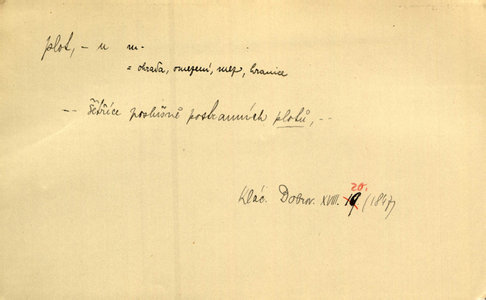 plot, - u m.
= ohrada, omezení, mez, hranice
-- šetříce poslušně postranních plotů, --
20.
Klác. Dobrov. XVIII. 19 (1847)